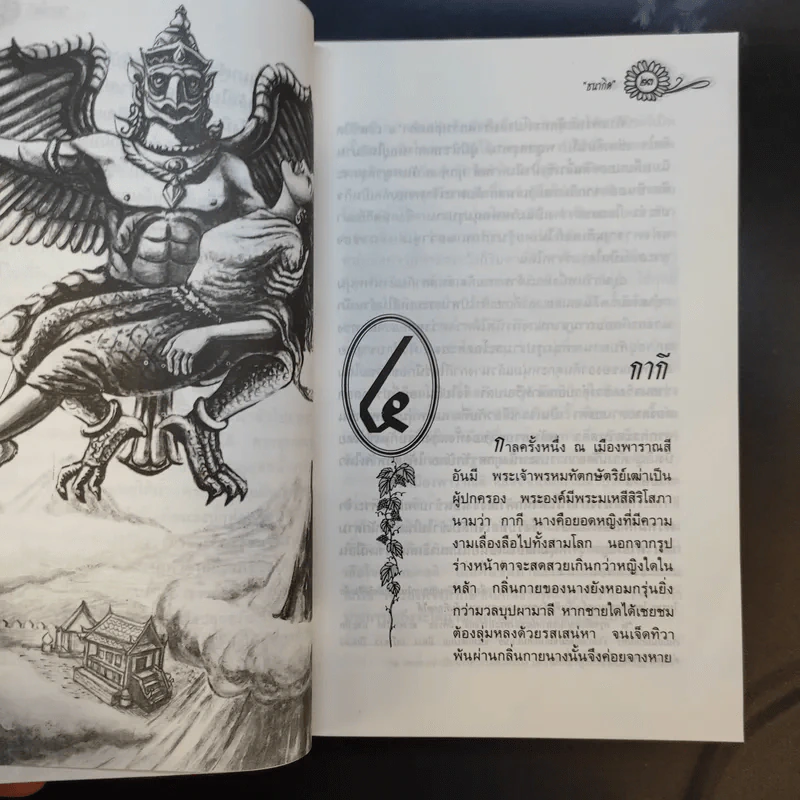 "ธนากิต" ๒๓
๔
กากี
กาลครั้งหนึ่ง ณ เมืองพาราณสี
อันมี พระเจ้าพรหมทัตกษัตริย์เฒ่าเป็น
ผู้ปกครอง พระองค์มีพระมเหสีสิริโสภา
นามว่า กากี นางคือยอดหญิงที่มีความ
งามเลื่องลือไปทั้งสามโลก นอกจากรูป
ร่างหน้าตาจะสดสวยเกินกว่าหญิงใดใน
หล้า กลิ่นกายของนางยังหอมกรุ่นยิ่ง
กว่ามวลบุปผามาลี หากชายใดได้เชยชม
ต้องลุ่มหลงด้วยรสเสน่หา จนเจ็ดทิวา
พ้นผ่านกลิ่นกายนางนั้นจึงค่อยจางหาย